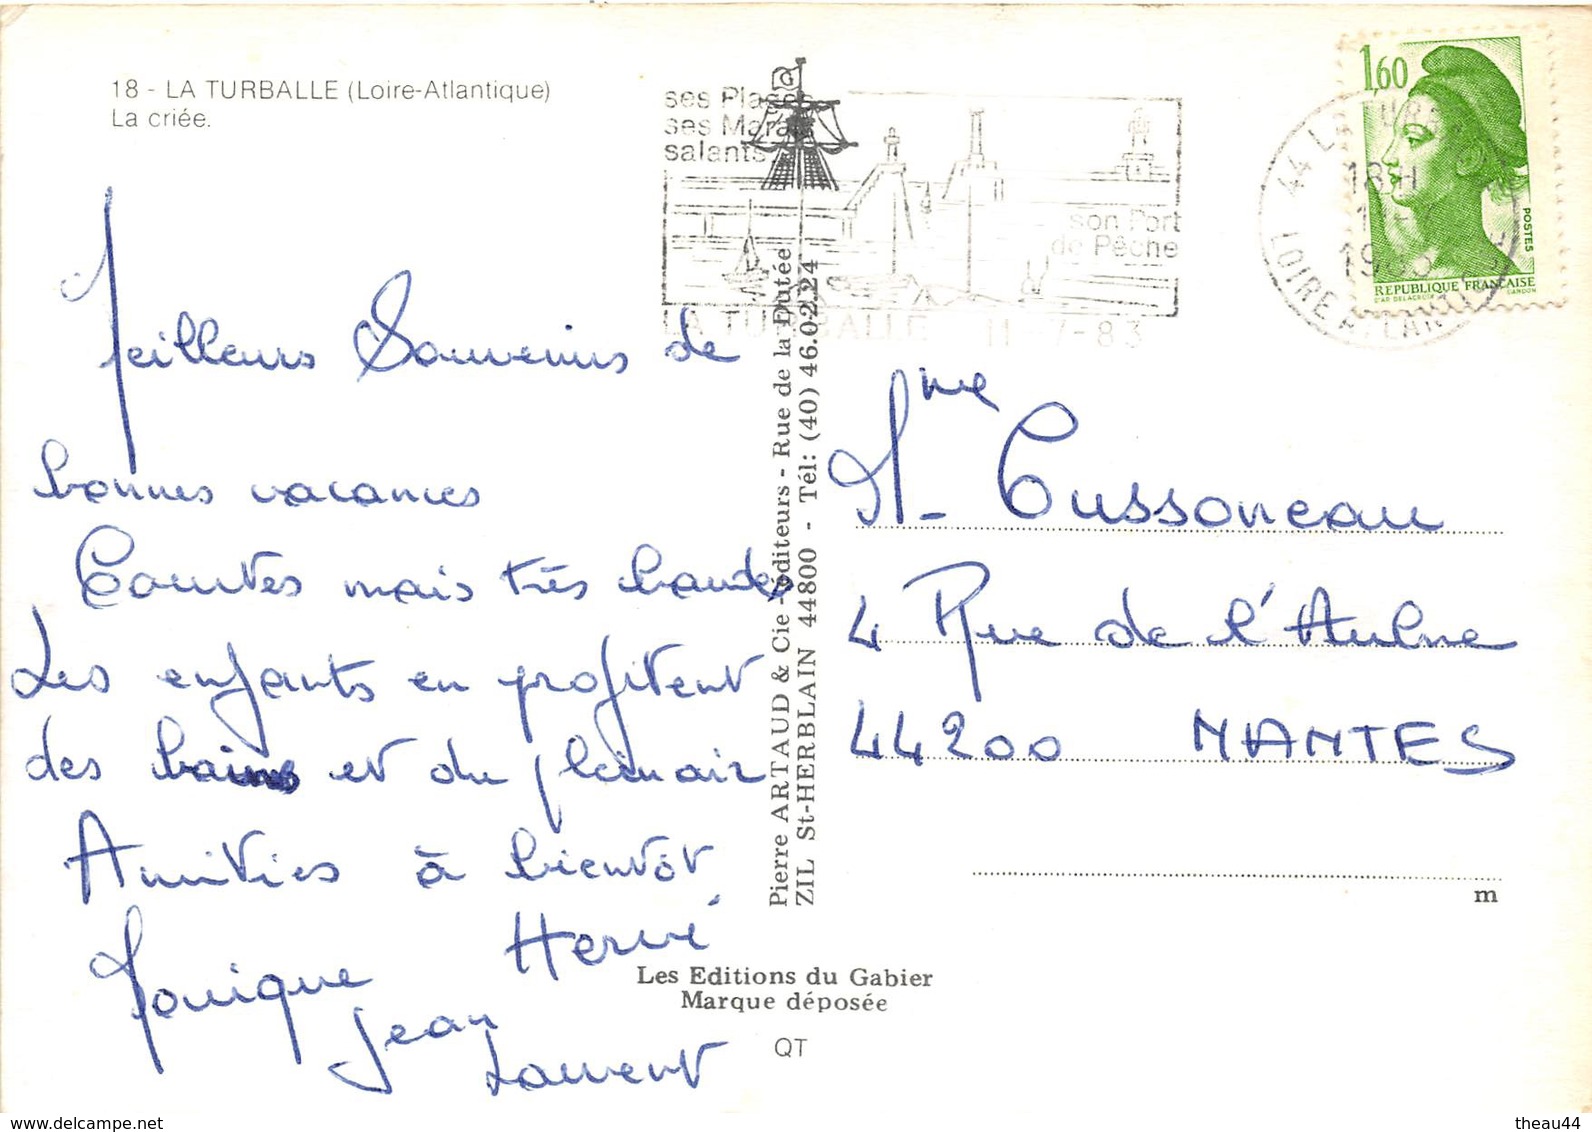 18 - LA TURBALLE (Loire-Atlantique)
La criée.
ses Plages
ses Marais
salants
son Port
de Pêche
LA TURBALLE 11-7-83
44 LA TURBALLE
18H
1983
LOIRE ATLANTIQUE
1,60
POSTES
REPUBLIQUE FRANÇAISE
D'AP. DELACROIX GANDON
Meilleurs Souvenirs de
bonnes vacances
Courtes mais très chaudes
Les enfants en profitent
des bains et du plein air
Amitiés à bientôt
Monique Hervé
Jean
Laurent
Pierre ARTAUD & Cie - éditeurs - Rue de la Dutée
ZIL St-HERBLAIN 44800 - Tél: (40) 46.02.24
Mme
Cussonneau
4 Rue de l'Aulne
44200 NANTES
m
Les Editions du Gabier
Marque déposée
QT
delcampe.net
theau44